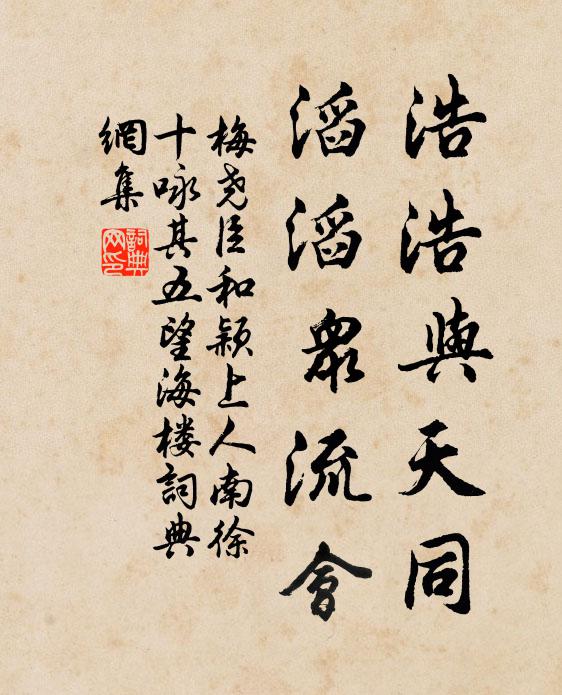 浩浩與天同
滔滔眾流會
梅堯臣和颖上人南徐
十咏其五望海楼詞典
網集
詞典
网印